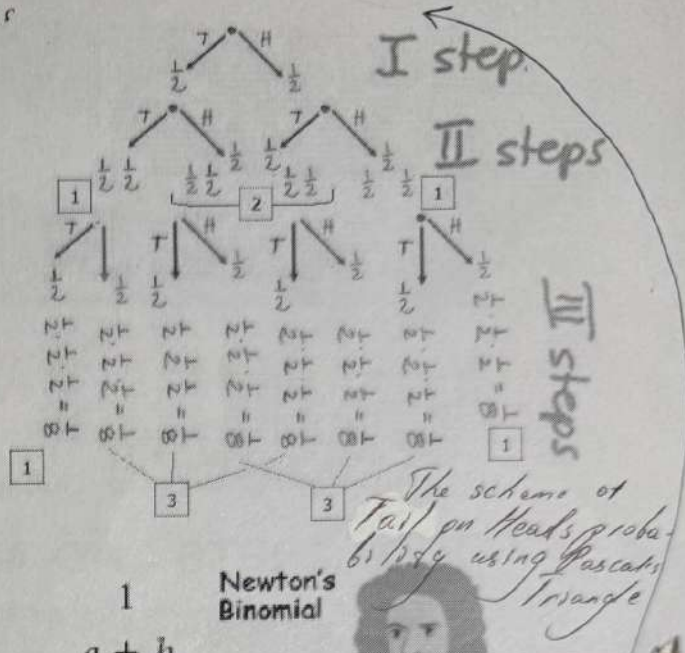 T H
1/2 1/2
I step.
T H T H
1/2 1/2 1/2 1/2 1/2 1/2 1/2 1/2 1/2 1/2
II steps
1 2 1
T T H T H T H
1/2 1/2 1/2 1/2 1/2 1/2 1/2 1/2
III steps
1/2 · 1/2 · 1/2 = 1/8
1/2 · 1/2 · 1/2 = 1/8
1/2 · 1/2 · 1/2 = 1/8
1/2 · 1/2 · 1/2 = 1/8
1/2 · 1/2 · 1/2 = 1/8
1/2 · 1/2 · 1/2 = 1/8
1/2 · 1/2 · 1/2 = 1/8
1/2 · 1/2 · 1/2 = 1/8
1 3 3 1
The scheme of
Tail on Heads proba-
bility using Pascal's
Triangle
Newton's
Binomial
1
a + b